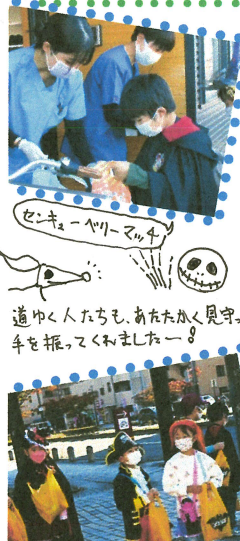 センキューベリーマッチ
道ゆく人たちも、あたたかく見守っ
手を振ってくれましたー!